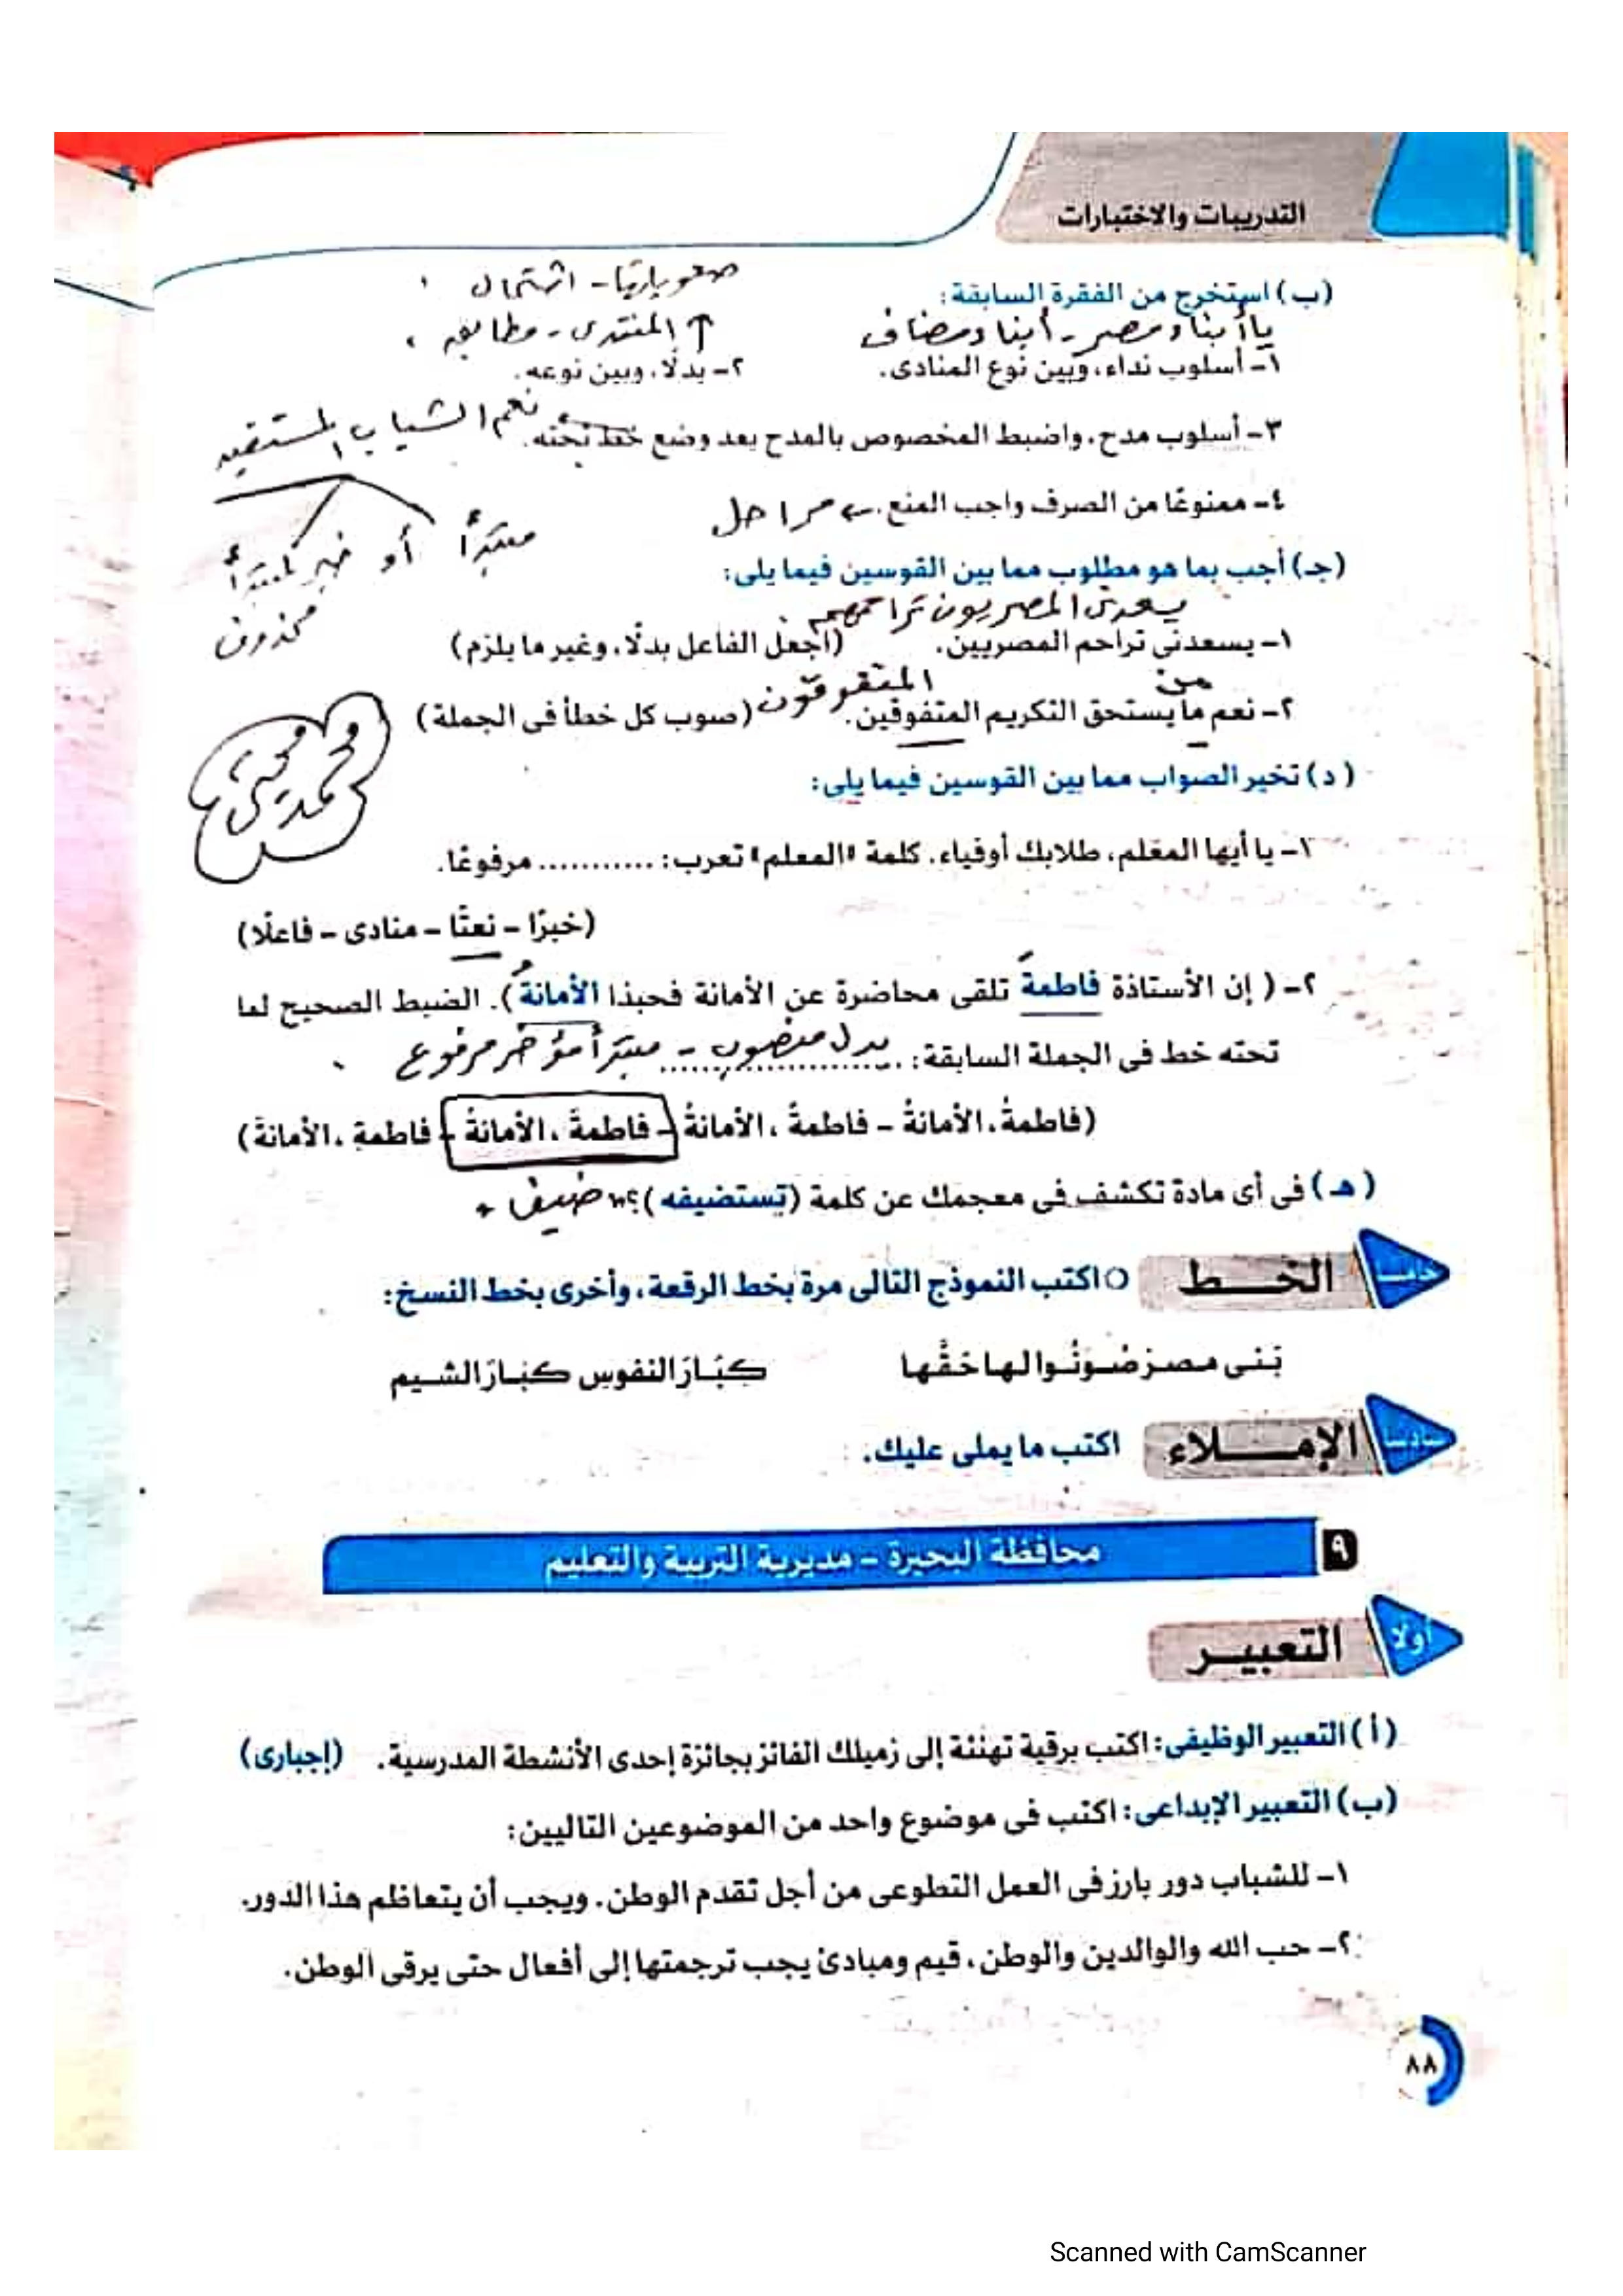 التدريبات والاختبارات
(ب) استخرج من الفقرة السابقة:
صعوباتها - اشتمال
يا أبناء مصر - أبناء مضاف
المنتدى - مطابق
١- أسلوب نداء، وبين نوع المنادى.
٢- بدلًا، وبين نوعه.
٣- أسلوب مدح، واضبط المخصوص بالمدح بعد وضع خط تحته.
نعم الشباب المستفيد
٤- ممنوعًا من الصرف واجب المنع.
مراحل
مبتدأ أو خبر لمبتدأ
محذوف
(جـ) أجب بما هو مطلوب مما بين القوسين فيما يلى:
يسعدنى المصريون تراحمهم
١- يسعدنى تراحم المصريين. (اجعل الفاعل بدلًا، وغير ما يلزم)
من المتفوقون
٢- نعم ما يستحق التكريم المتفوقين. (صوب كل خطأ فى الجملة)
محمد يحيى
(د) تخير الصواب مما بين القوسين فيما يلى:
١- يا أيها المعلم، طلابك أوفياء. كلمة "المعلم" تعرب: ............ مرفوعًا.
(خبرًا - نعتًا - منادى - فاعلًا)
٢- ( إن الأستاذة فاطمة تلقى محاضرة عن الأمانة فحبذا الأمانة). الضبط الصحيح لما
تحته خط فى الجملة السابقة: ..............................
بدل منصوب - مبتدأ مؤخر مرفوع
(فاطمةُ، الأمانةُ - فاطمةُ، الأمانةُ - فاطمةَ، الأمانةُ - فاطمةِ، الأمانةَ)
(هـ) فى أى مادة تكشف فى معجمك عن كلمة (تستضيفه)؟
ضيف
خامسا
الخـــط
اكتب النموذج التالى مرة بخط الرقعة، وأخرى بخط النسخ:
بَنى مصر صُونُوا لها حَقَّها كبَارَ النفوسِ كبَارَ الشيم
سادسا
الإمـــلاء
اكتب ما يملى عليك.
٩
محافظة البحيرة - مديرية التربية والتعليم
أولا
التعبيـر
(أ) التعبير الوظيفى: اكتب برقية تهنئة إلى زميلك الفائز بجائزة إحدى الأنشطة المدرسية. (إجبارى)
(ب) التعبير الإبداعى: اكتب فى موضوع واحد من الموضوعين التاليين:
١- للشباب دور بارز فى العمل التطوعى من أجل تقدم الوطن. ويجب أن يتعاظم هذا الدور.
٢- حب الله والوالدين والوطن، قيم ومبادئ يجب ترجمتها إلى أفعال حتى يرقى الوطن.
٨٨
Scanned with CamScanner